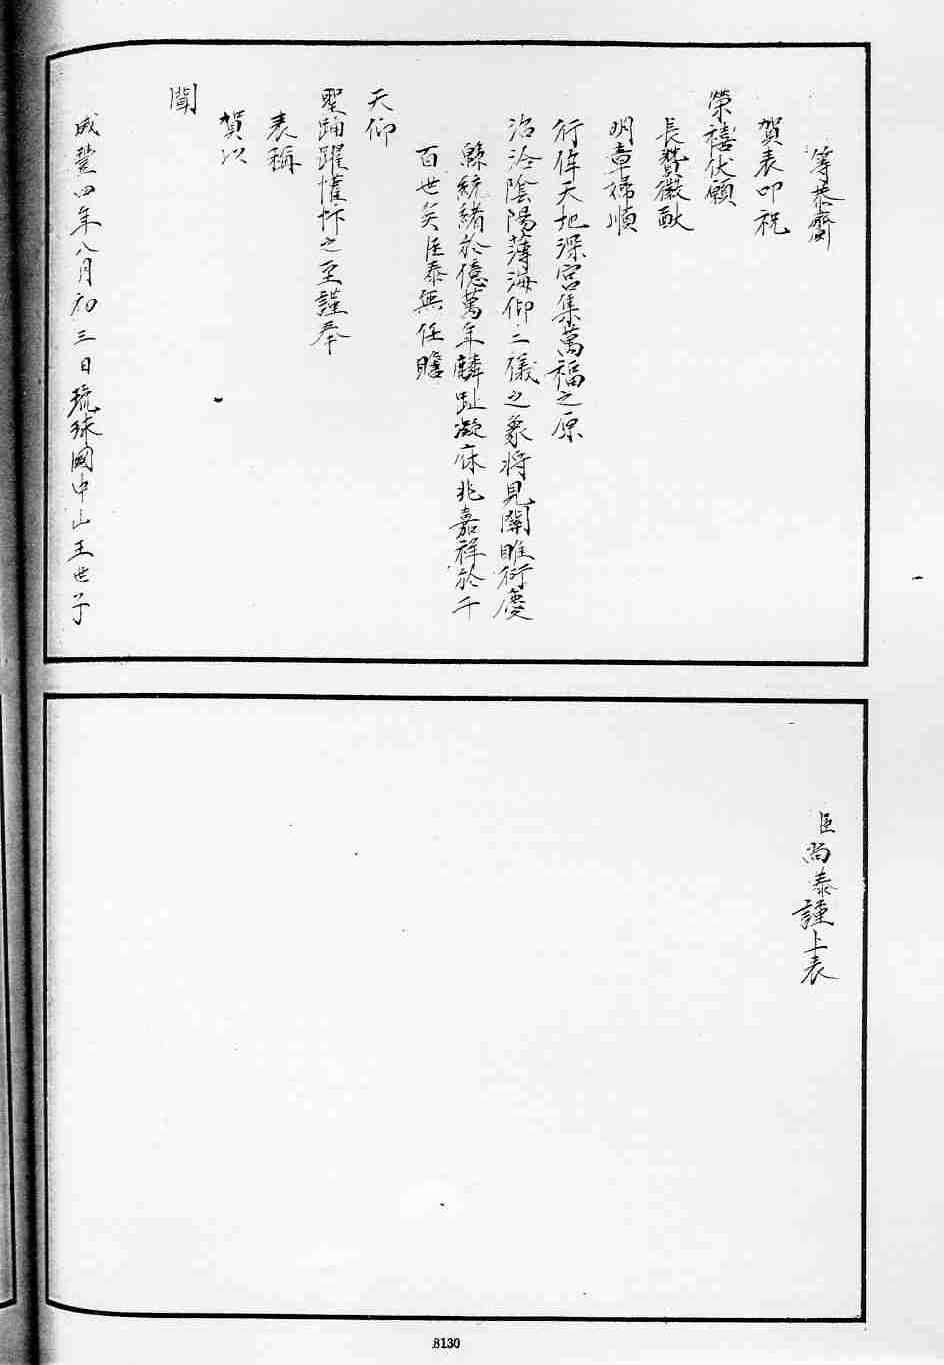 等恭齎
賀表叩祝
榮禧伏願
長贊徽猷
明章婦順
行侔天地深宮集萬福之原
治洽陰陽薄海仰二儀之象將見關雎衍慶
緜統緒於億萬年麟趾凝庥兆嘉祥於千
百世矣臣泰無任瞻
天仰
聖踊躍懽忭之至謹奉
表稱
賀以
聞
咸豐四年八月初三日琉球國中山王世子
臣尚泰謹上表
8130